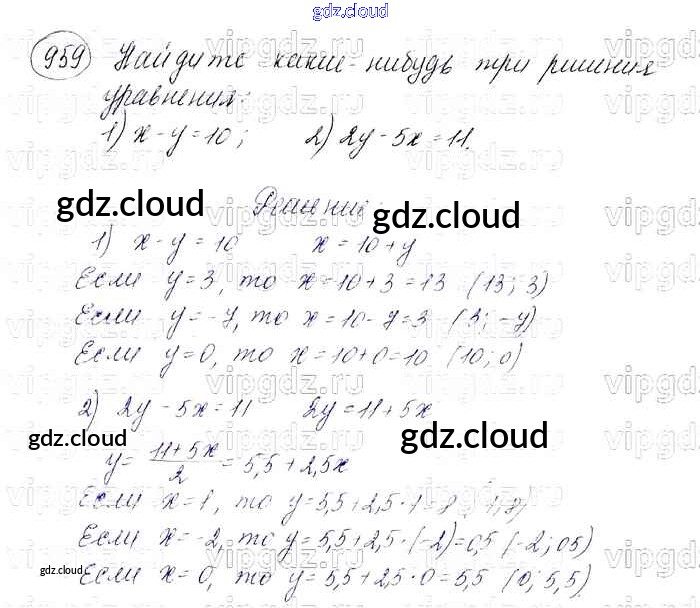 gdz.cloud
959 Найдите какие-нибудь три решения
уравнения:
1) x - y = 10; 2) 2y - 5x = 11.
gdz.cloud Решение: gdz.cloud
1) x - y = 10 x = 10 + y
Если y = 3, то x = 10 + 3 = 13 (13; 3)
Если y = -7, то x = 10 - 7 = 3 (3; -7)
Если y = 0, то x = 10 + 0 = 10 (10; 0)
2) 2y - 5x = 11 2y = 11 + 5x
gdz.cloud gdz.cloud
y = (11 + 5x)/2 = 5,5 + 2,5x
Если x = 1, то y = 5,5 + 2,5 · 1 = 8 (1; 8)
Если x = -2, то y = 5,5 + 2,5 · (-2) = 0,5 (-2; 0,5)
gdz.cloud
Если x = 0, то y = 5,5 + 2,5 · 0 = 5,5 (0; 5,5)
vipgdz.ru